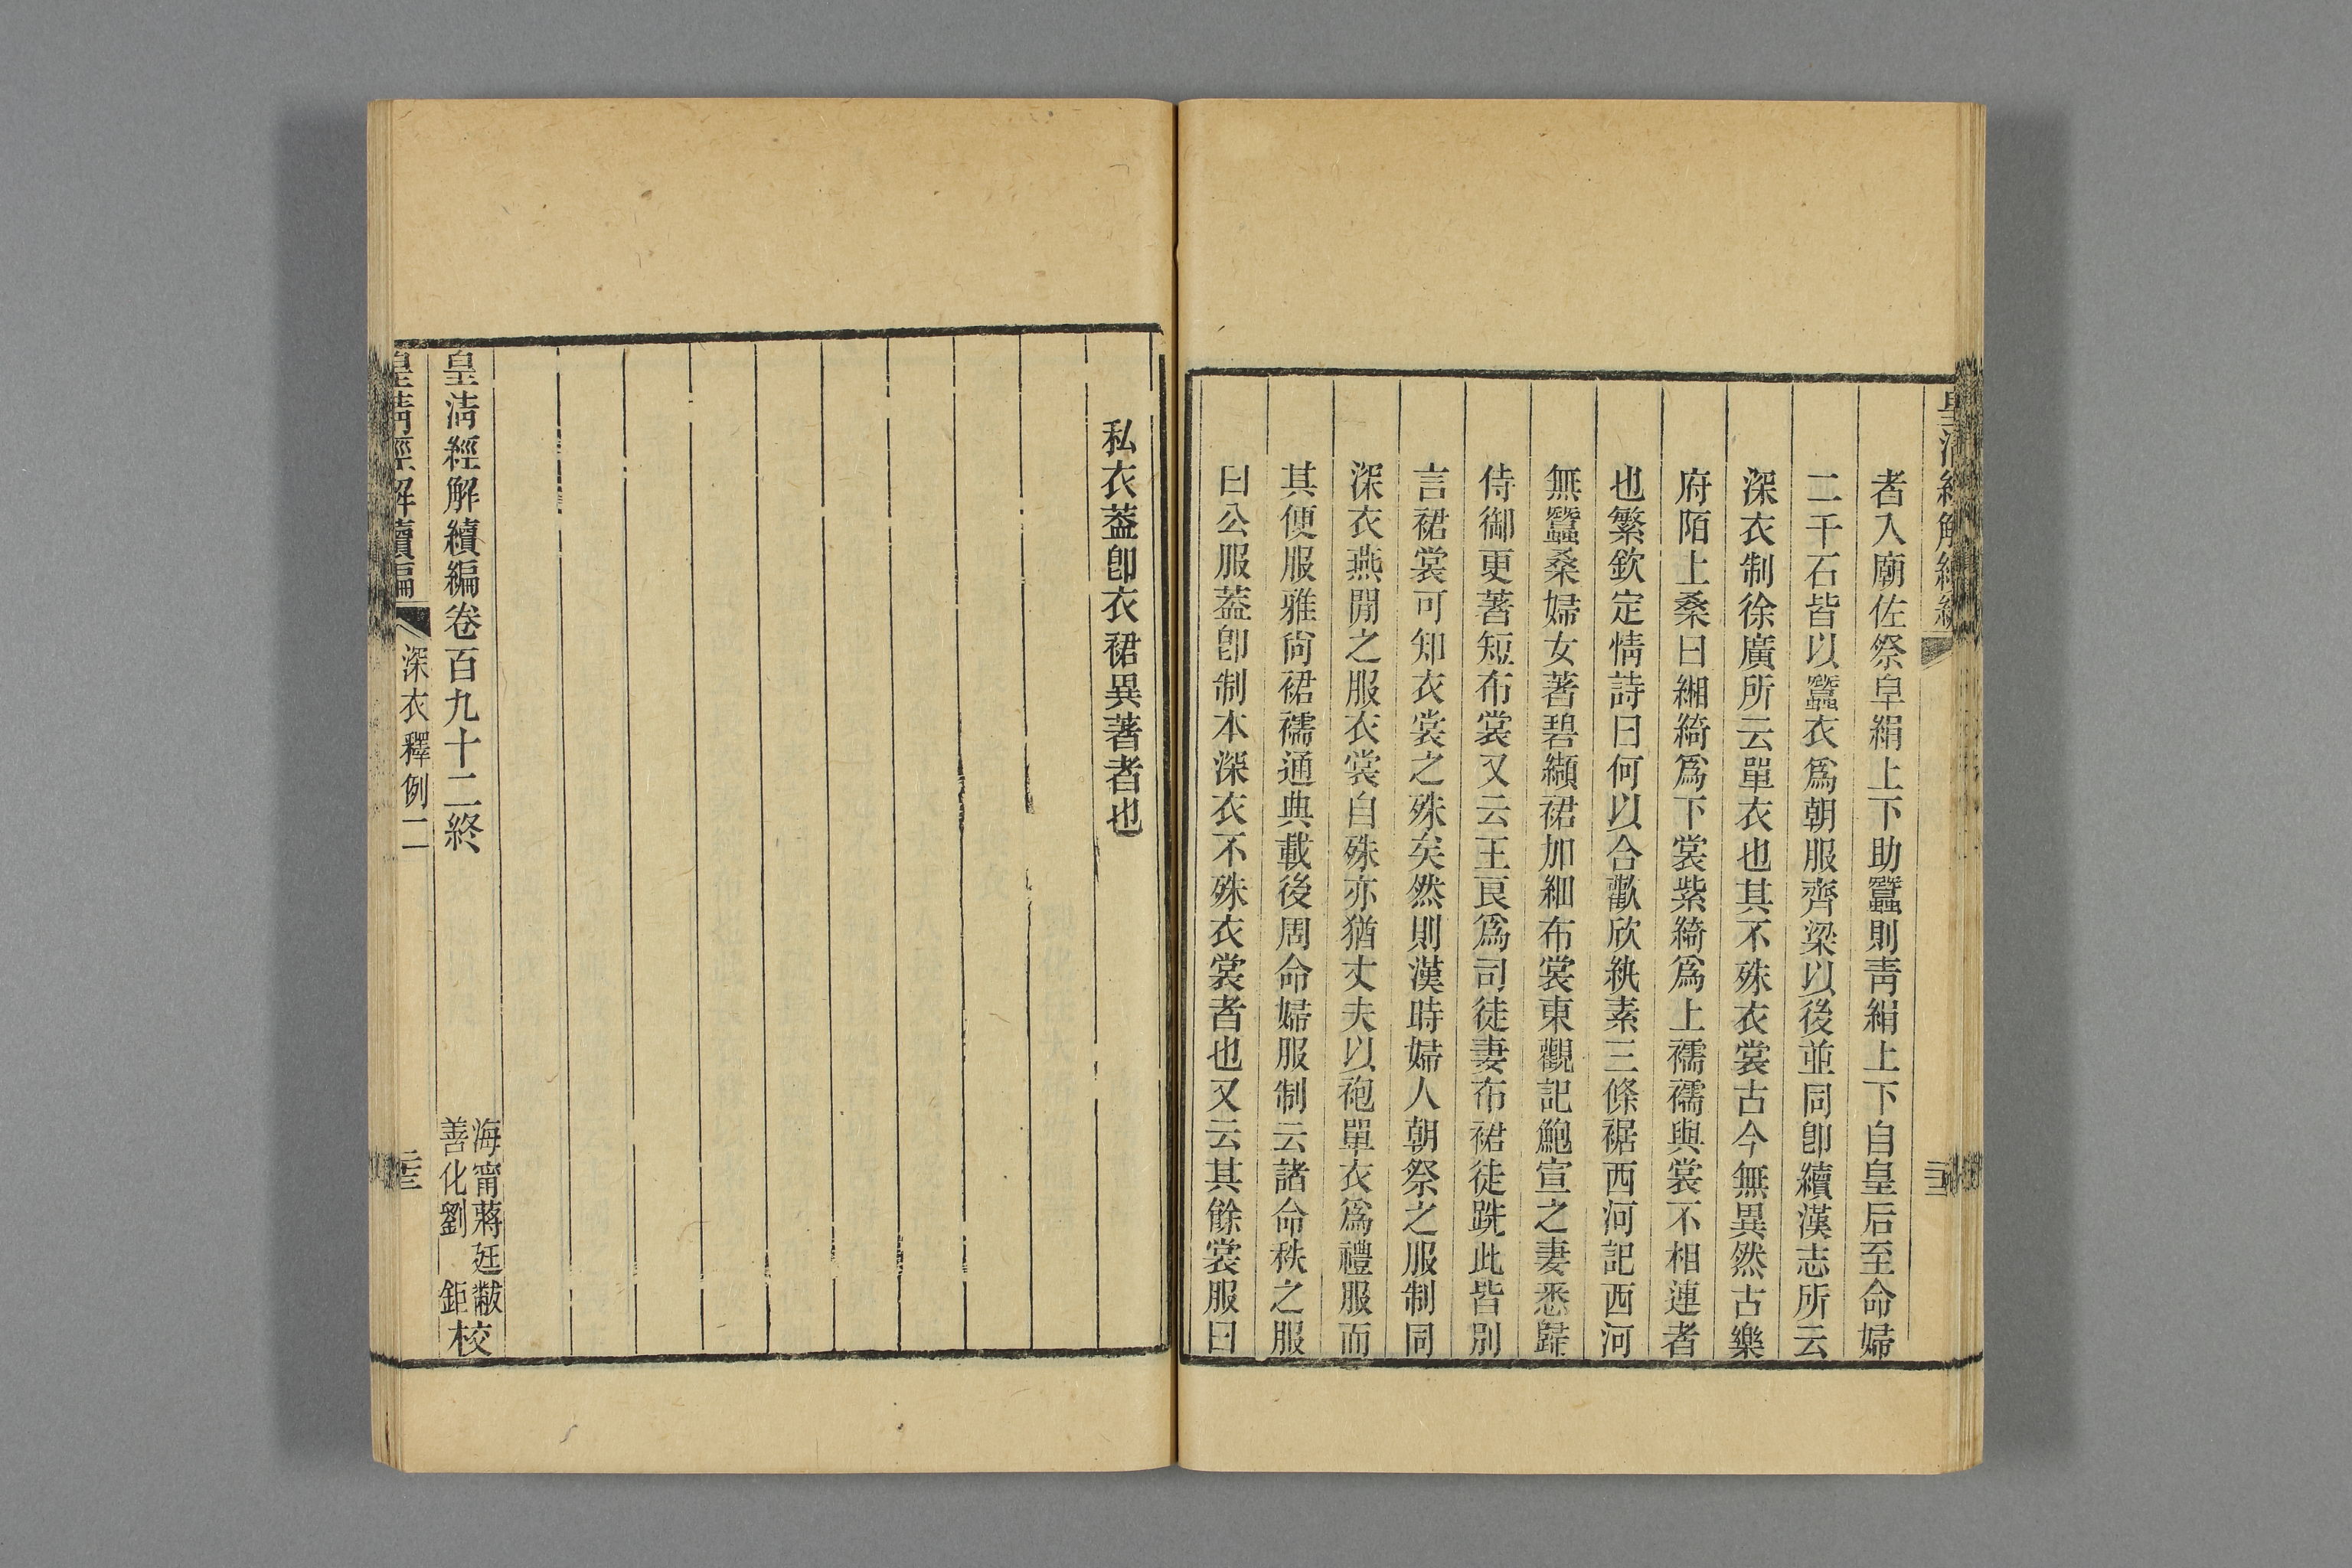 者入廟佐祭皁絹上下助蠶則靑絹上下自皇后至命婦
二千石皆以蠶衣爲朝服齊梁以後並同卽續漢志所云
深衣制徐廣所云單衣也其不殊衣裳古今無異然古樂
府陌上桑曰緗綺爲下裳紫綺爲上襦襦與裳不相連者
也繁欽定情詩曰何以合歡欣紈素三條裾西河記西河
無蠶桑婦女著碧纈裙加細布裳東觀記鮑宣之妻悉歸
侍御更著短布裳又云王良爲司徒妻布裙徒跣此皆別
言裙裳可知衣裳之殊矣然則漢時婦人朝祭之服制同
深衣燕閒之服衣裳自殊亦猶丈夫以袍單衣爲禮服而
其便服雅尙裙襦通典載後周命婦服制云諸命秩之服
曰公服葢卽制本深衣不殊衣裳者也又云其餘裳服曰
私衣葢卽衣裙異著者也
皇淸經解續編卷百九十二終
海甯蔣廷黻
善化劉 鉅
校
皇淸經解續編
深衣釋例二